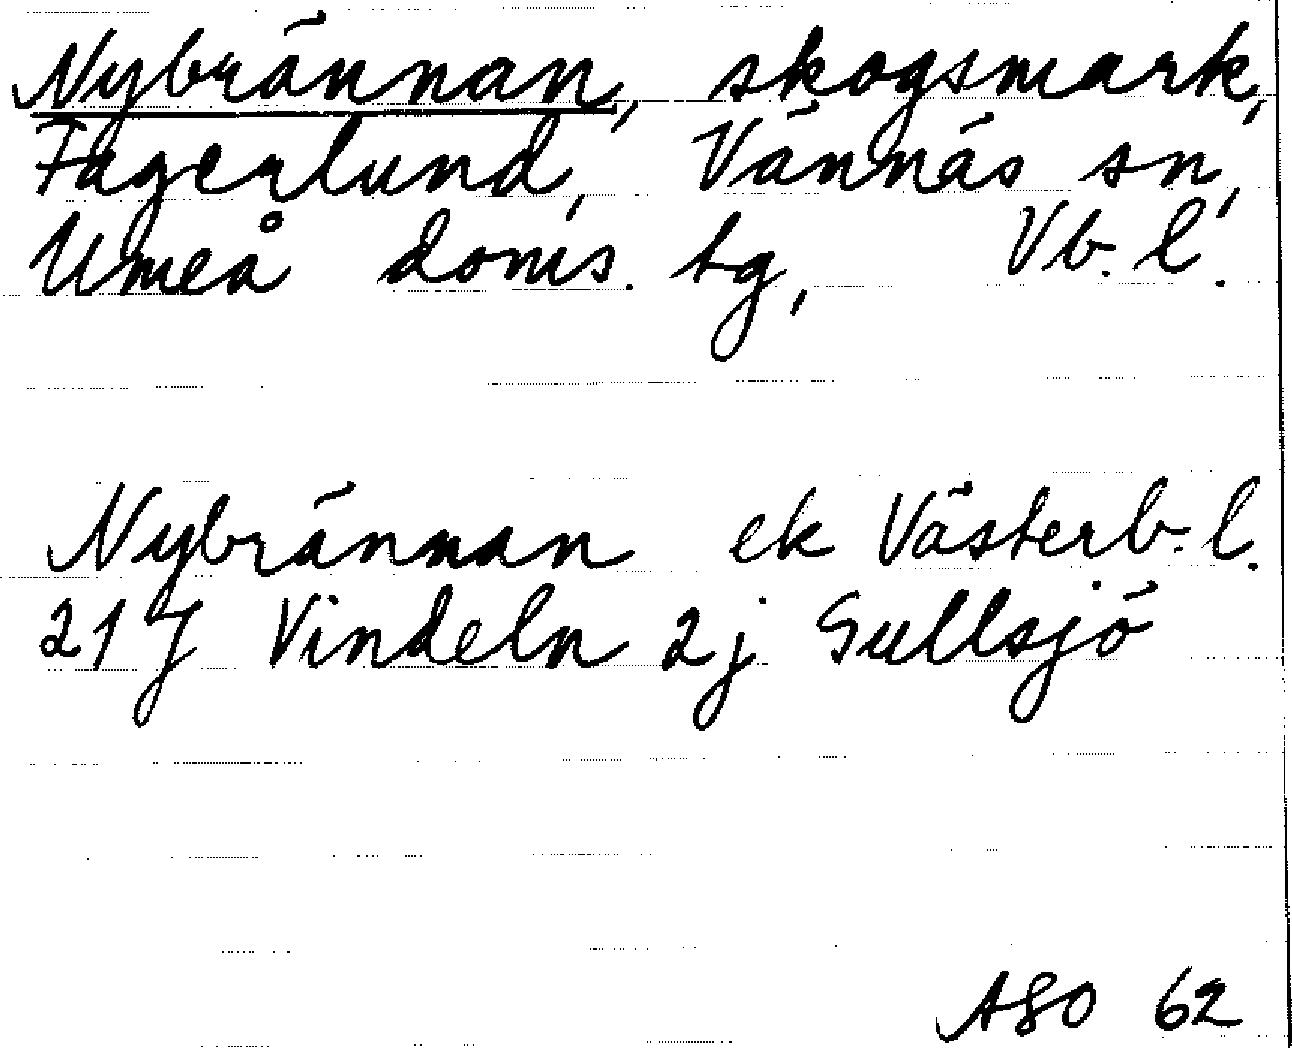 Nybrännan, skogsmark,
Fagerlund, Vännäs sn,
Umeå doms. tg, Vb. l.
Nybrännan ek Västerb. l.
21 J Vindeln 2j Gullsjö
ASO 62